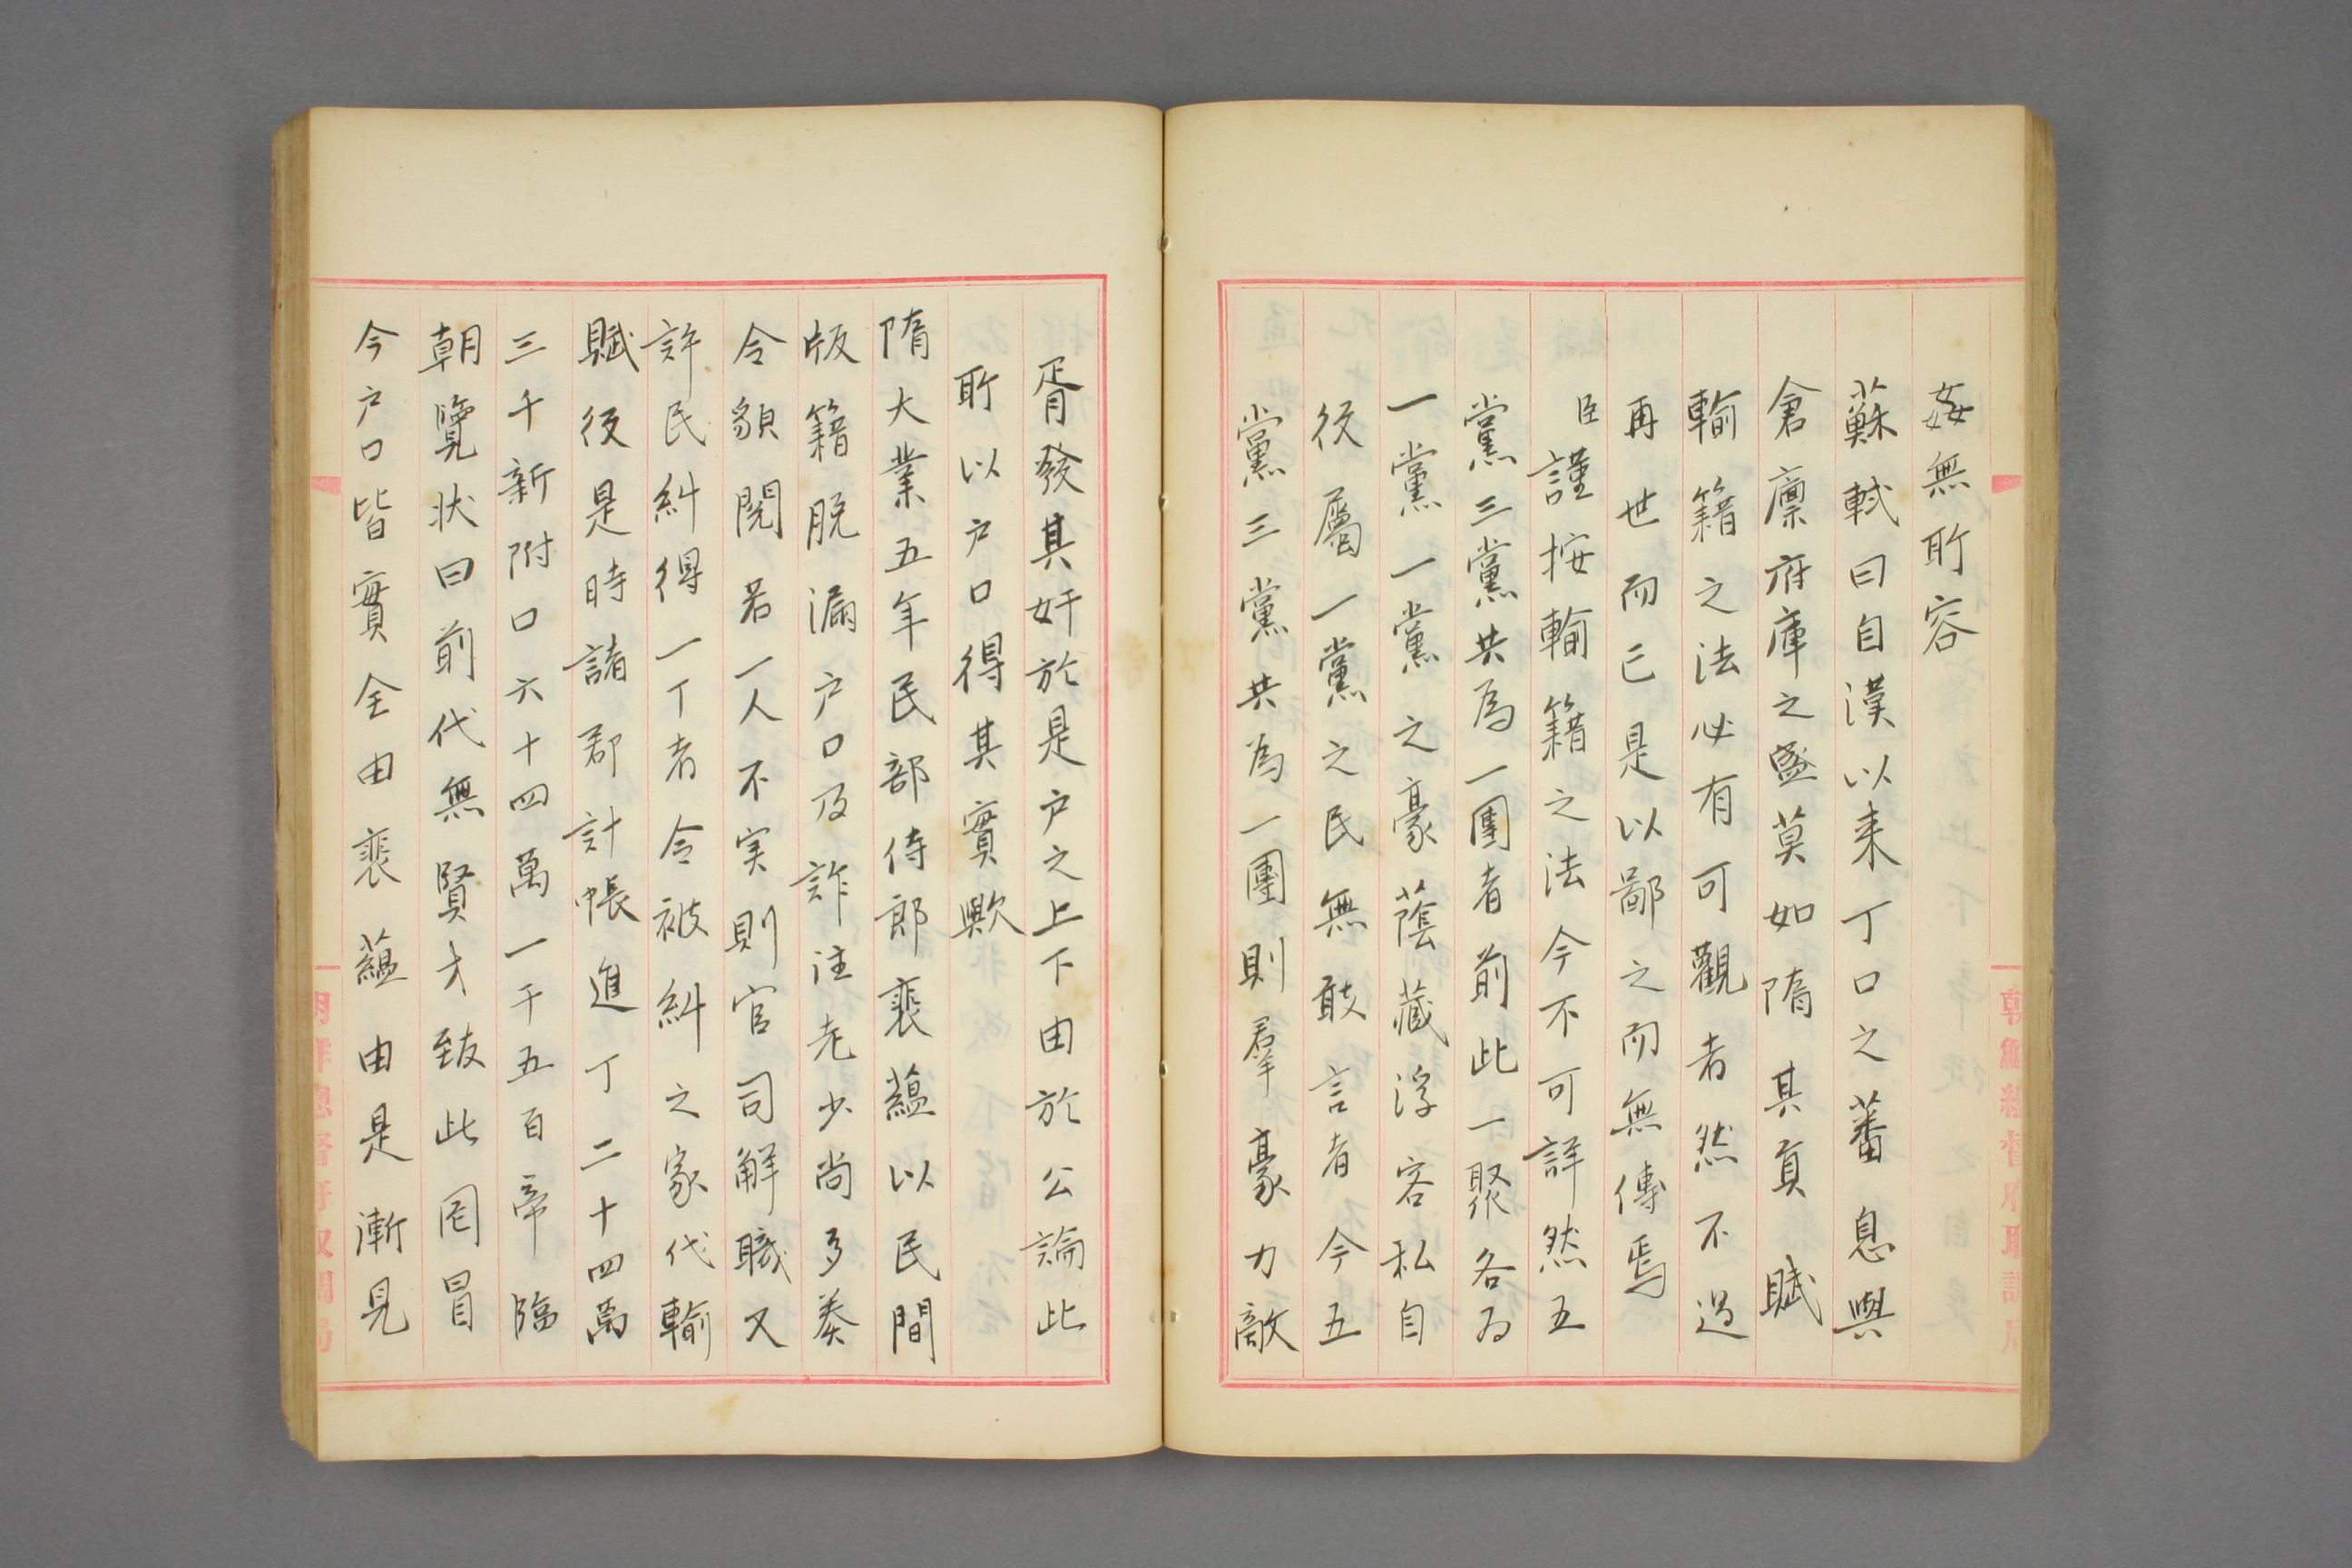 姦無所容
蘇軾曰自漢以来丁口之蕃息與
倉廪府庫之盛莫如隋其貢賦
輸籍之法必有可觀者然不過
再世而已是以鄙之而無傳焉
臣謹按輸籍之法今不可詳然五
黨三黨共為一團者前此一聚各为
一黨一黨之豪蔭藏浮客私自
役屬一黨之民無敢言者今五
黨三黨共為一團則羣豪力敵
胥發其奸於是户之上下由於公論此
所以户口得其實歟
隋大業五年民部侍郎裴蘊以民間
版籍脱漏户口及詐注老少尚多奏
令貌閱若一人不実則官司解職又
許民糾得一丁者令被糾之家代輸
賦役是時諸郡計帳進丁二十四萬
三千新附口六十四萬一千五百帝臨
朝覽状曰前代無賢才致此罔冒
今户口皆實全由裴蘊由是漸見
朝鮮總督府取調局